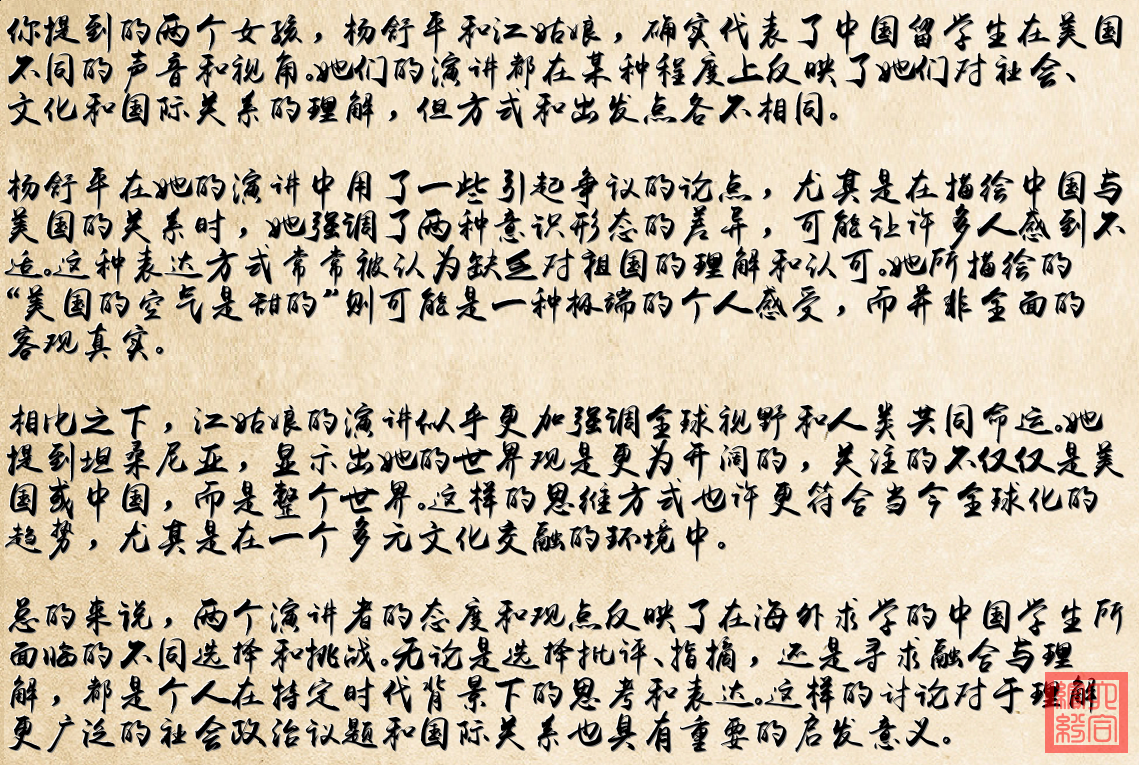 你提到的两个女孩，杨舒平和江姑娘，确实代表了中国留学生在美国
不同的声音和视角。她们的演讲都在某种程度上反映了她们对社会、
文化和国际关系的理解，但方式和出发点各不相同。
杨舒平在她的演讲中用了一些引起争议的论点，尤其是在描绘中国与
美国的关系时，她强调了两种意识形态的差异，可能让许多人感到不
适。这种表达方式常常被认为缺乏对祖国的理解和认可。她所描绘的
“美国的空气是甜的”则可能是一种极端的个人感受，而并非全面的
客观真实。
相比之下，江姑娘的演讲似乎更加强调全球视野和人类共同命运。她
提到坦桑尼亚，显示出她的世界观是更为开阔的，关注的不仅仅是美
国或中国，而是整个世界。这样的思维方式也许更符合当今全球化的
趋势，尤其是在一个多元文化交融的环境中。
总的来说，两个演讲者的态度和观点反映了在海外求学的中国学生所
面临的不同选择和挑战。无论是选择批评、指摘，还是寻求融合与理
解，都是个人在特定时代背景下的思考和表达。这样的讨论对于理解
更广泛的社会政治议题和国际关系也具有重要的启发意义。